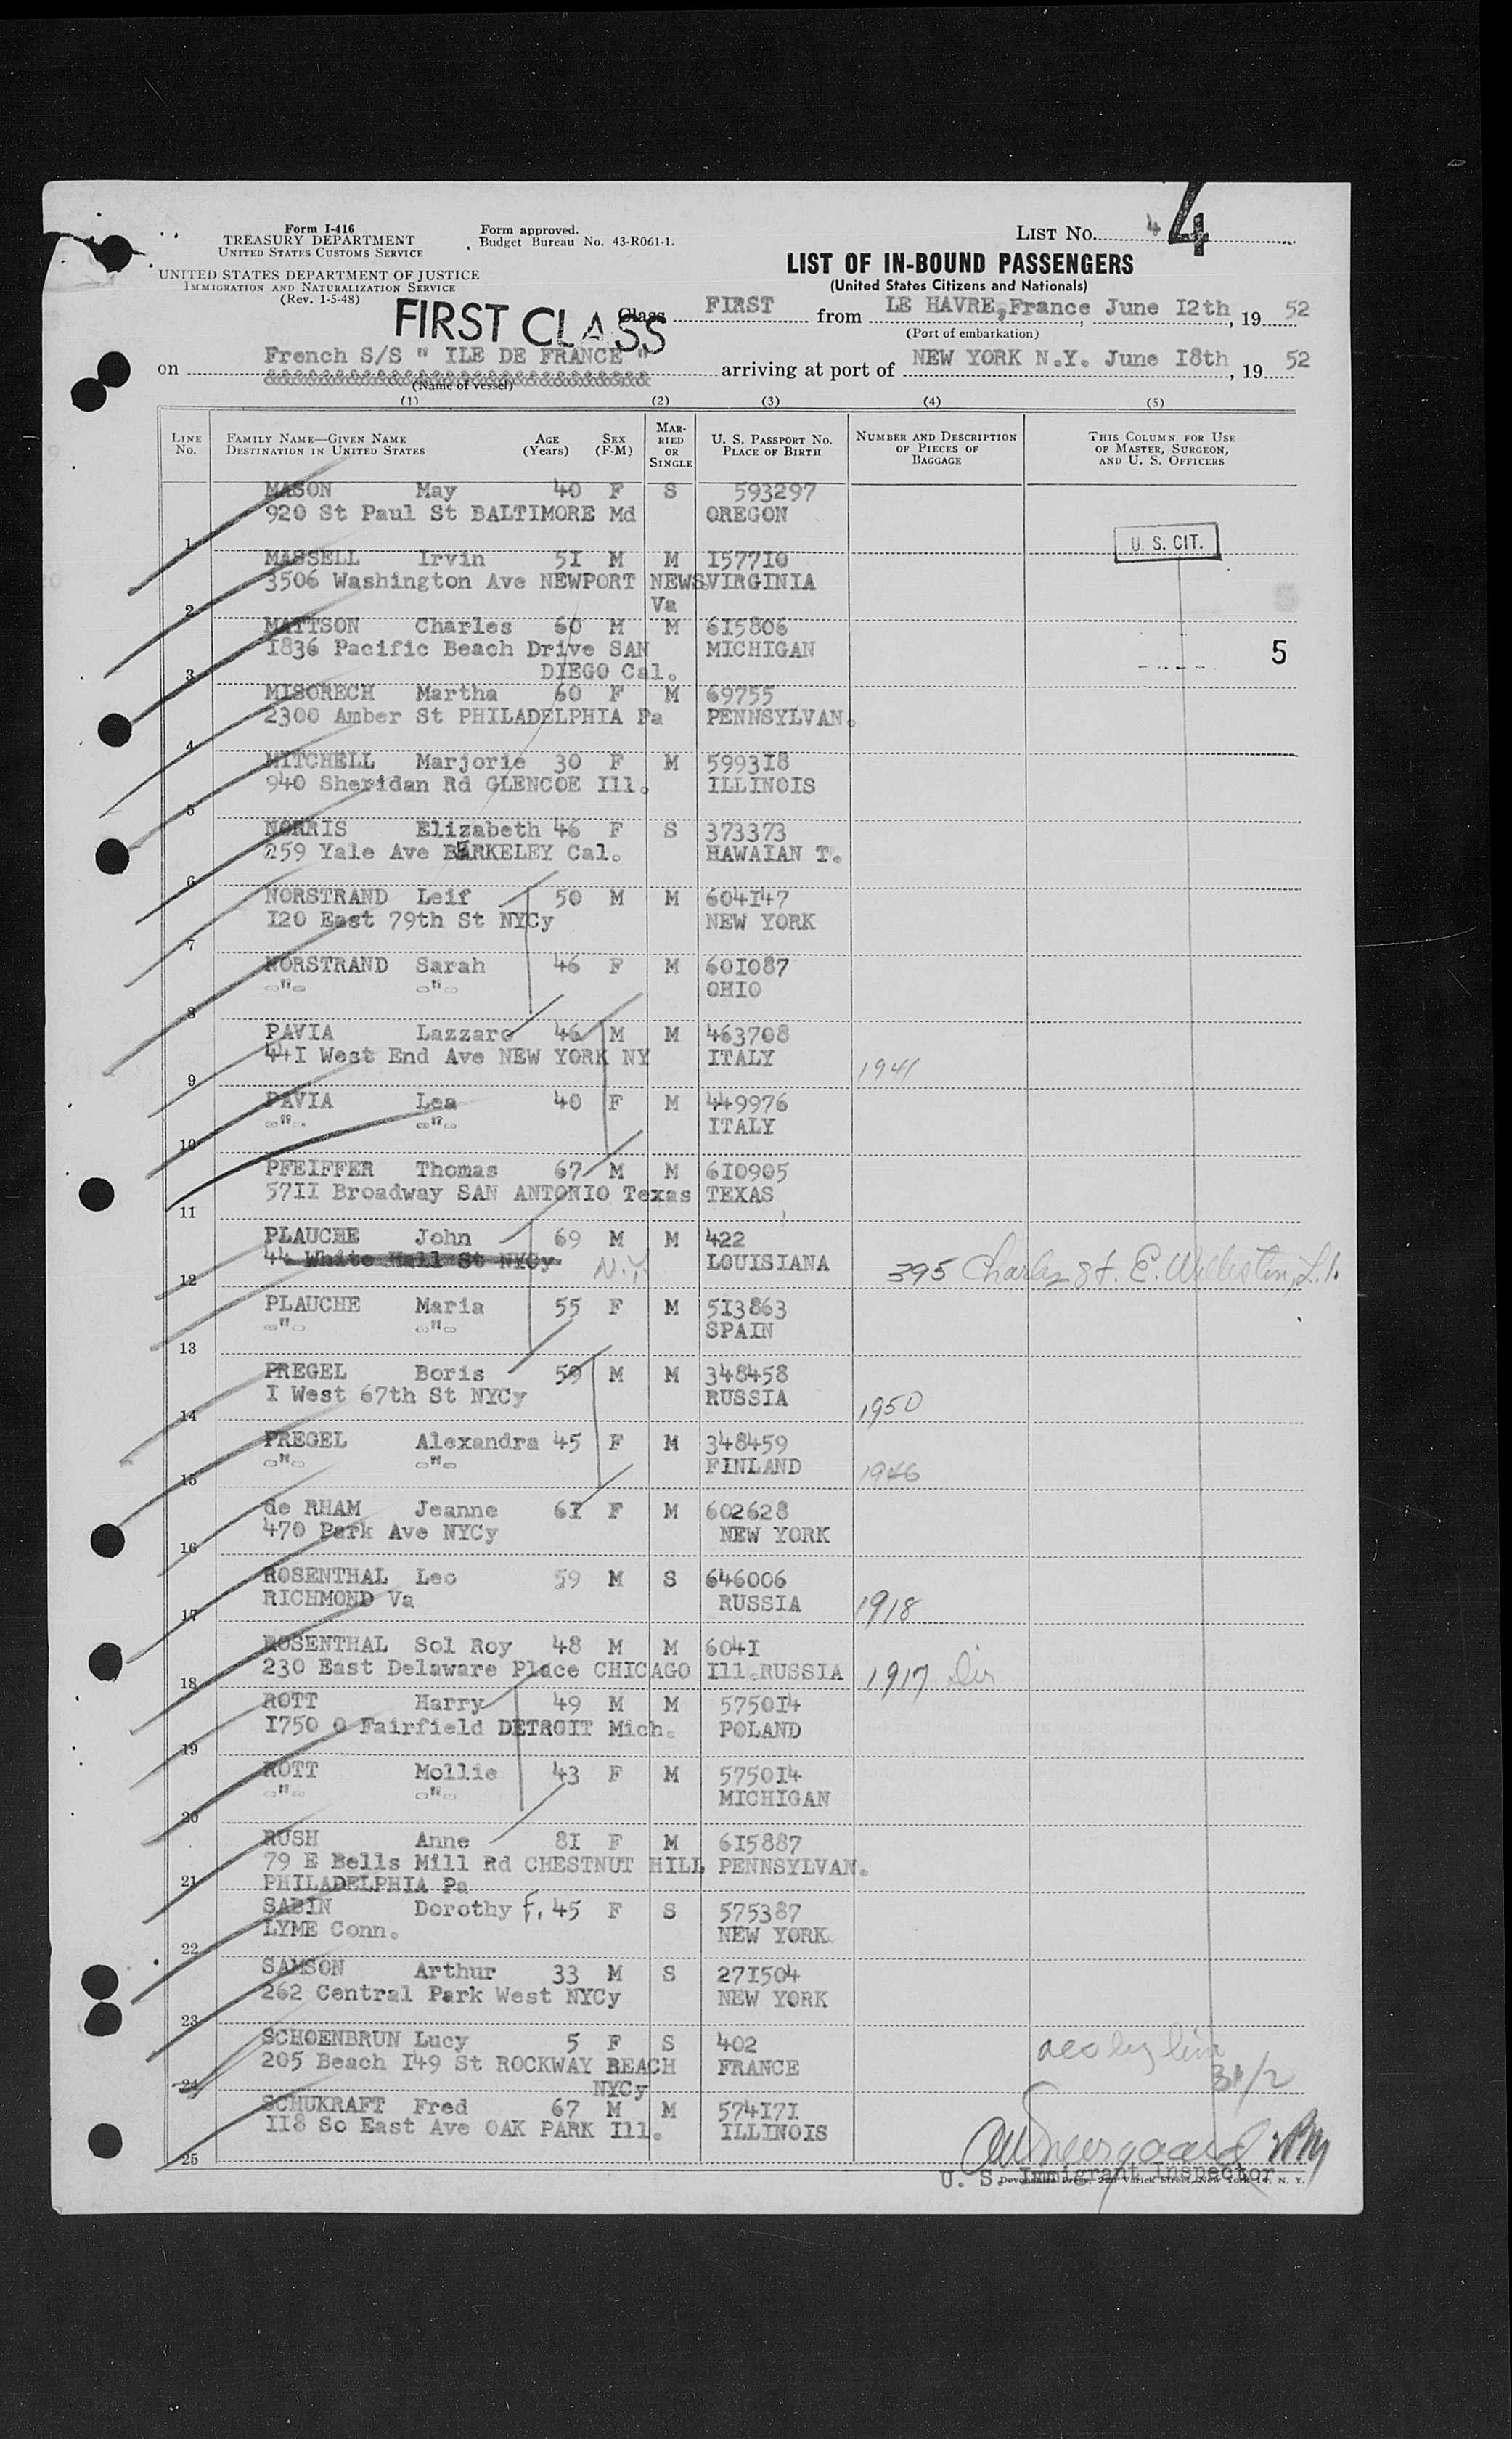 4
LIST No. 4
Form I-416
TREASURY DEPARTMENT
UNITED STATES CUSTOMS SERVICE
Form approved.
Budget Bureau No. 43-R061-1.
UNITED STATES DEPARTMENT OF JUSTICE
IMMIGRATION AND NATURALIZATION SERVICE
(Rev. 1-5-48)
LIST OF IN-BOUND PASSENGERS
(United States Citizens and Nationals)
FIRST CLASS
Class FIRST from LE HAVRE, France, June I2th, 19 52
(Port of embarkation)
on French S/S " ILE DE FRANCE " arriving at port of NEW YORK N.Y. June I8th, 19 52
&&&&&&&&&&&&&&&&&&&&&&&&&&&&&
(Name of vessel)
(1) (2) (3) (4) (5)
LINE No. FAMILY NAME—GIVEN NAME DESTINATION IN UNITED STATES AGE (Years) SEX (F-M) MARRIED OR SINGLE U. S. PASSPORT No. PLACE OF BIRTH NUMBER AND DESCRIPTION OF PIECES OF BAGGAGE THIS COLUMN FOR USE OF MASTER, SURGEON, AND U. S. OFFICERS
MASON May 40 F S 593297
920 St Paul St BALTIMORE Md OREGON
1 U. S. CIT.
MASSELL Irvin 5I M M I577I0
3506 Washington Ave NEWPORT NEWS VIRGINIA
2 Va
MATTSON Charles 60 M M 6I5806
I836 Pacific Beach Drive SAN MICHIGAN 5
3 DIEGO Cal.
MISORECH Martha 60 F M 69755
2300 Amber St PHILADELPHIA Pa PENNSYLVAN.
4
MITCHELL Marjorie 30 F M 5993I8
940 Sheridan Rd GLENCOE Ill. ILLINOIS
5
NORRIS Elizabeth 46 F S 373373
259 Yale Ave BERKELEY Cal. HAWAIAN T.
6
NORSTRAND Leif 50 M M 604I47
I20 East 79th St NYCy NEW YORK
7
NORSTRAND Sarah 46 F M 60I087
-"- -"- OHIO
8
PAVIA Lazzaro 46 M M 463708
44I West End Ave NEW YORK NY ITALY 1941
9
PAVIA Lea 40 F M 449976
-"- -"- ITALY
10
PFEIFFER Thomas 67 M M 6I0905
57II Broadway SAN ANTONIO Texas TEXAS
11
PLAUCHE John 69 M M 422
44 White Hall St NYCy N.Y. LOUISIANA 395 Charles St. E. Williston, L.I.
12
PLAUCHE Maria 55 F M 5I3863
-"- -"- SPAIN
13
PREGEL Boris 59 M M 348458
I West 67th St NYCy RUSSIA 1950
14
PREGEL Alexandra 45 F M 348459
-"- -"- FINLAND 1946
15
de RHAM Jeanne 6I F M 602628
470 Park Ave NYCy NEW YORK
16
ROSENTHAL Leo 59 M S 646006
RICHMOND Va RUSSIA 1918
17
ROSENTHAL Sol Roy 48 M M 604I
230 East Delaware Place CHICAGO Ill. RUSSIA 1917 Div
18
ROTT Harry 49 M M 5750I4
I750 0 Fairfield DETROIT Mich. POLAND
19
ROTT Mollie 43 F M 5750I4
-"- -"- MICHIGAN
20
RUSH Anne 8I F M 6I5887
79 E Bells Mill Rd CHESTNUT HILL PENNSYLVAN.
21 PHILADELPHIA Pa
SABIN Dorothy F. 45 F S 575387
LYME Conn. NEW YORK
22
SAMSON Arthur 33 M S 27I504
262 Central Park West NYCy NEW YORK
23
SCHOENBRUN Lucy 5 F S 402
205 Beach I49 St ROCKWAY BEACH FRANCE
24 NYCy
SCHUKRAFT Fred 67 M M 574I7I
II8 So East Ave OAK PARK Ill. ILLINOIS
25
U. S. Immigrant Inspector
Devonshire Press, 225 Varick Street, New York 14, N. Y.